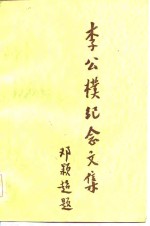 李公樸纪念文集
邓颖超题